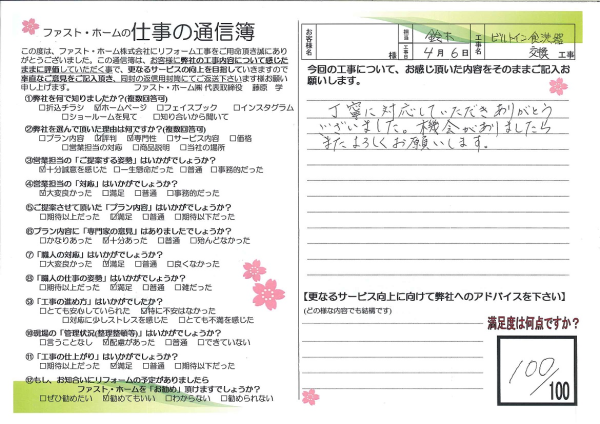 ファスト・ホームの仕事の通信簿
この度は、ファスト・ホーム株式会社にリフォーム工事をご用命頂き誠にあり
がとうございました。この通信簿は、お客様に弊社の工事内容について感じた
ままに評価していただく事で、更なるサービスの向上を目指していきますので
率直なご意見をご記入頂き、同封の返信用封筒にてご返送下さいます様お願い
申し上げます。 ファスト・ホーム㈱ 代表取締役 藤原 学
①弊社を何で知りましたか?(複数回答可)
□折込チラシ ☑ホームページ □フェイスブック □インスタグラム
□ショールームを見て □知り合いから聞いて
②弊社を選んで頂いた理由は何ですか?(複数回答可)
□プラン内容 ☑評判 ☑専門性 □サービス内容 □価格
□営業担当の対応 □商品説明 □当社の場所
③営業担当の「ご提案する姿勢」はいかがでしょうか?
☑十分誠意を感じた □一生懸命だった □普通 □事務的だった
④営業担当の「対応」はいかがでしょうか?
☑大変良かった □満足 □普通 □事務的だった
⑤ご提案させて頂いた「プラン内容」はいかがでしょうか?
□期待以上だった ☑満足 □普通 □期待以下だった
⑥プラン内容に「専門家の意見」はありましたでしょうか?
□かなりあった ☑十分あった □普通 □殆んどなかった
⑦「職人の対応」はいかがでしょうか?
□大変良かった ☑満足 □普通 □良くなかった
⑧「職人の仕事の姿勢」はいかがでしょうか?
□期待以上だった ☑満足 □普通 □雑だった
⑨「工事の進めかた」はいかがでしたか?
□とても安心していられた ☑特に不安はなかった
□対応に少しストレスを感じた □とても不満を感じた
⑩現場の「管理状況(整理整頓等)」はいかがでしょうか?
□言うことなし ☑配慮があった □普通 □できていない
⑪「工事の仕上がり」はいかがでしょうか?
□期待以上だった ☑満足 □普通 □期待以下だった
⑫もし、お知合いにリフォームの予定がありましたら
ファスト・ホームを「お勧め」頂けますでしょうか?
□ぜひ勧めたい ☑勧めてもいい □わからない □勧められない
お客様名
様
担当 鈴木
工事日 4月6日
工事名 ビルトイン食洗器
交換 工事
今回の工事について、お感じ頂いた内容をそのままご記入お
願いします。
丁寧に対応していただきありがとう
ございました。機会がありましたら
またよろしくお願いします。
【更なるサービス向上に向けて弊社へのアドバイスを下さい】
(どの様な内容でも結構です)
満足度は何点ですか?
100/100